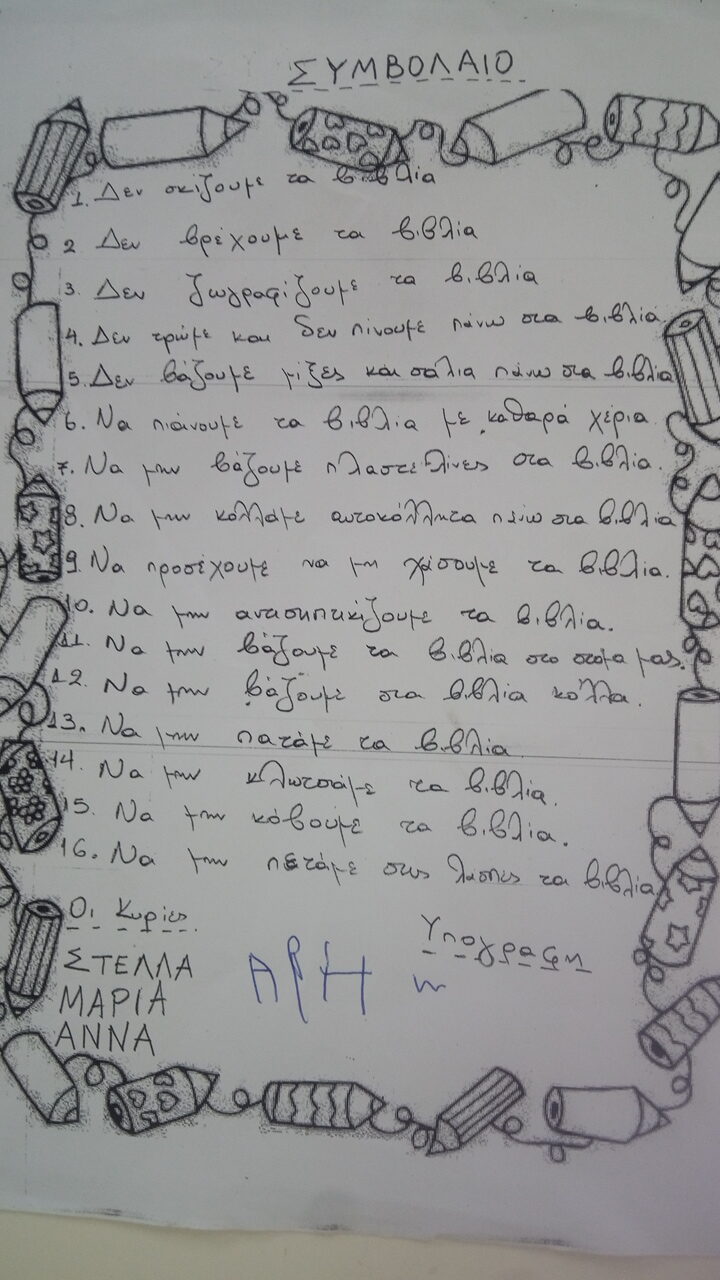 ΣΥΜΒΟΛΑΙΟ
1. Δεν σκίζουμε τα βιβλία
2 Δεν βρέχουμε τα βιβλία
3. Δεν ζωγραφίζουμε τα βιβλία
4. Δεν τρώμε και δεν πίνουμε πάνω στα βιβλία
5. Δεν βάζουμε μίξες και σάλια πάνω στα βιβλία
6. Να πιάνουμε τα βιβλία με καθαρά χέρια
7. Να μην βάζουμε πλαστελίνες στα βιβλία.
8. Να μην κολλάμε αυτοκόλλητα πάνω στα βιβλία
9. Να προσέχουμε να μη χάσουμε τα βιβλία.
10. Να μην τα βιβλία.
11. Να μην βάζουμε τα βιβλία στο στόμα μας.
12. Να μην βάζουμε στα βιβλία κόλλα.
13. Να μην πατάμε τα βιβλία
14. Να μην κλωτσάμε τα βιβλία.
15. Να μην κόβουμε τα βιβλία.
16. Να μην πετάμε στις λάσπες τα βιβλία
Οι Κυρίες
Υπογραφή
ΣΤΕΛΛΑ
ΜΑΡΙΑ
ΑΝΝΑ
ΑΡΗ